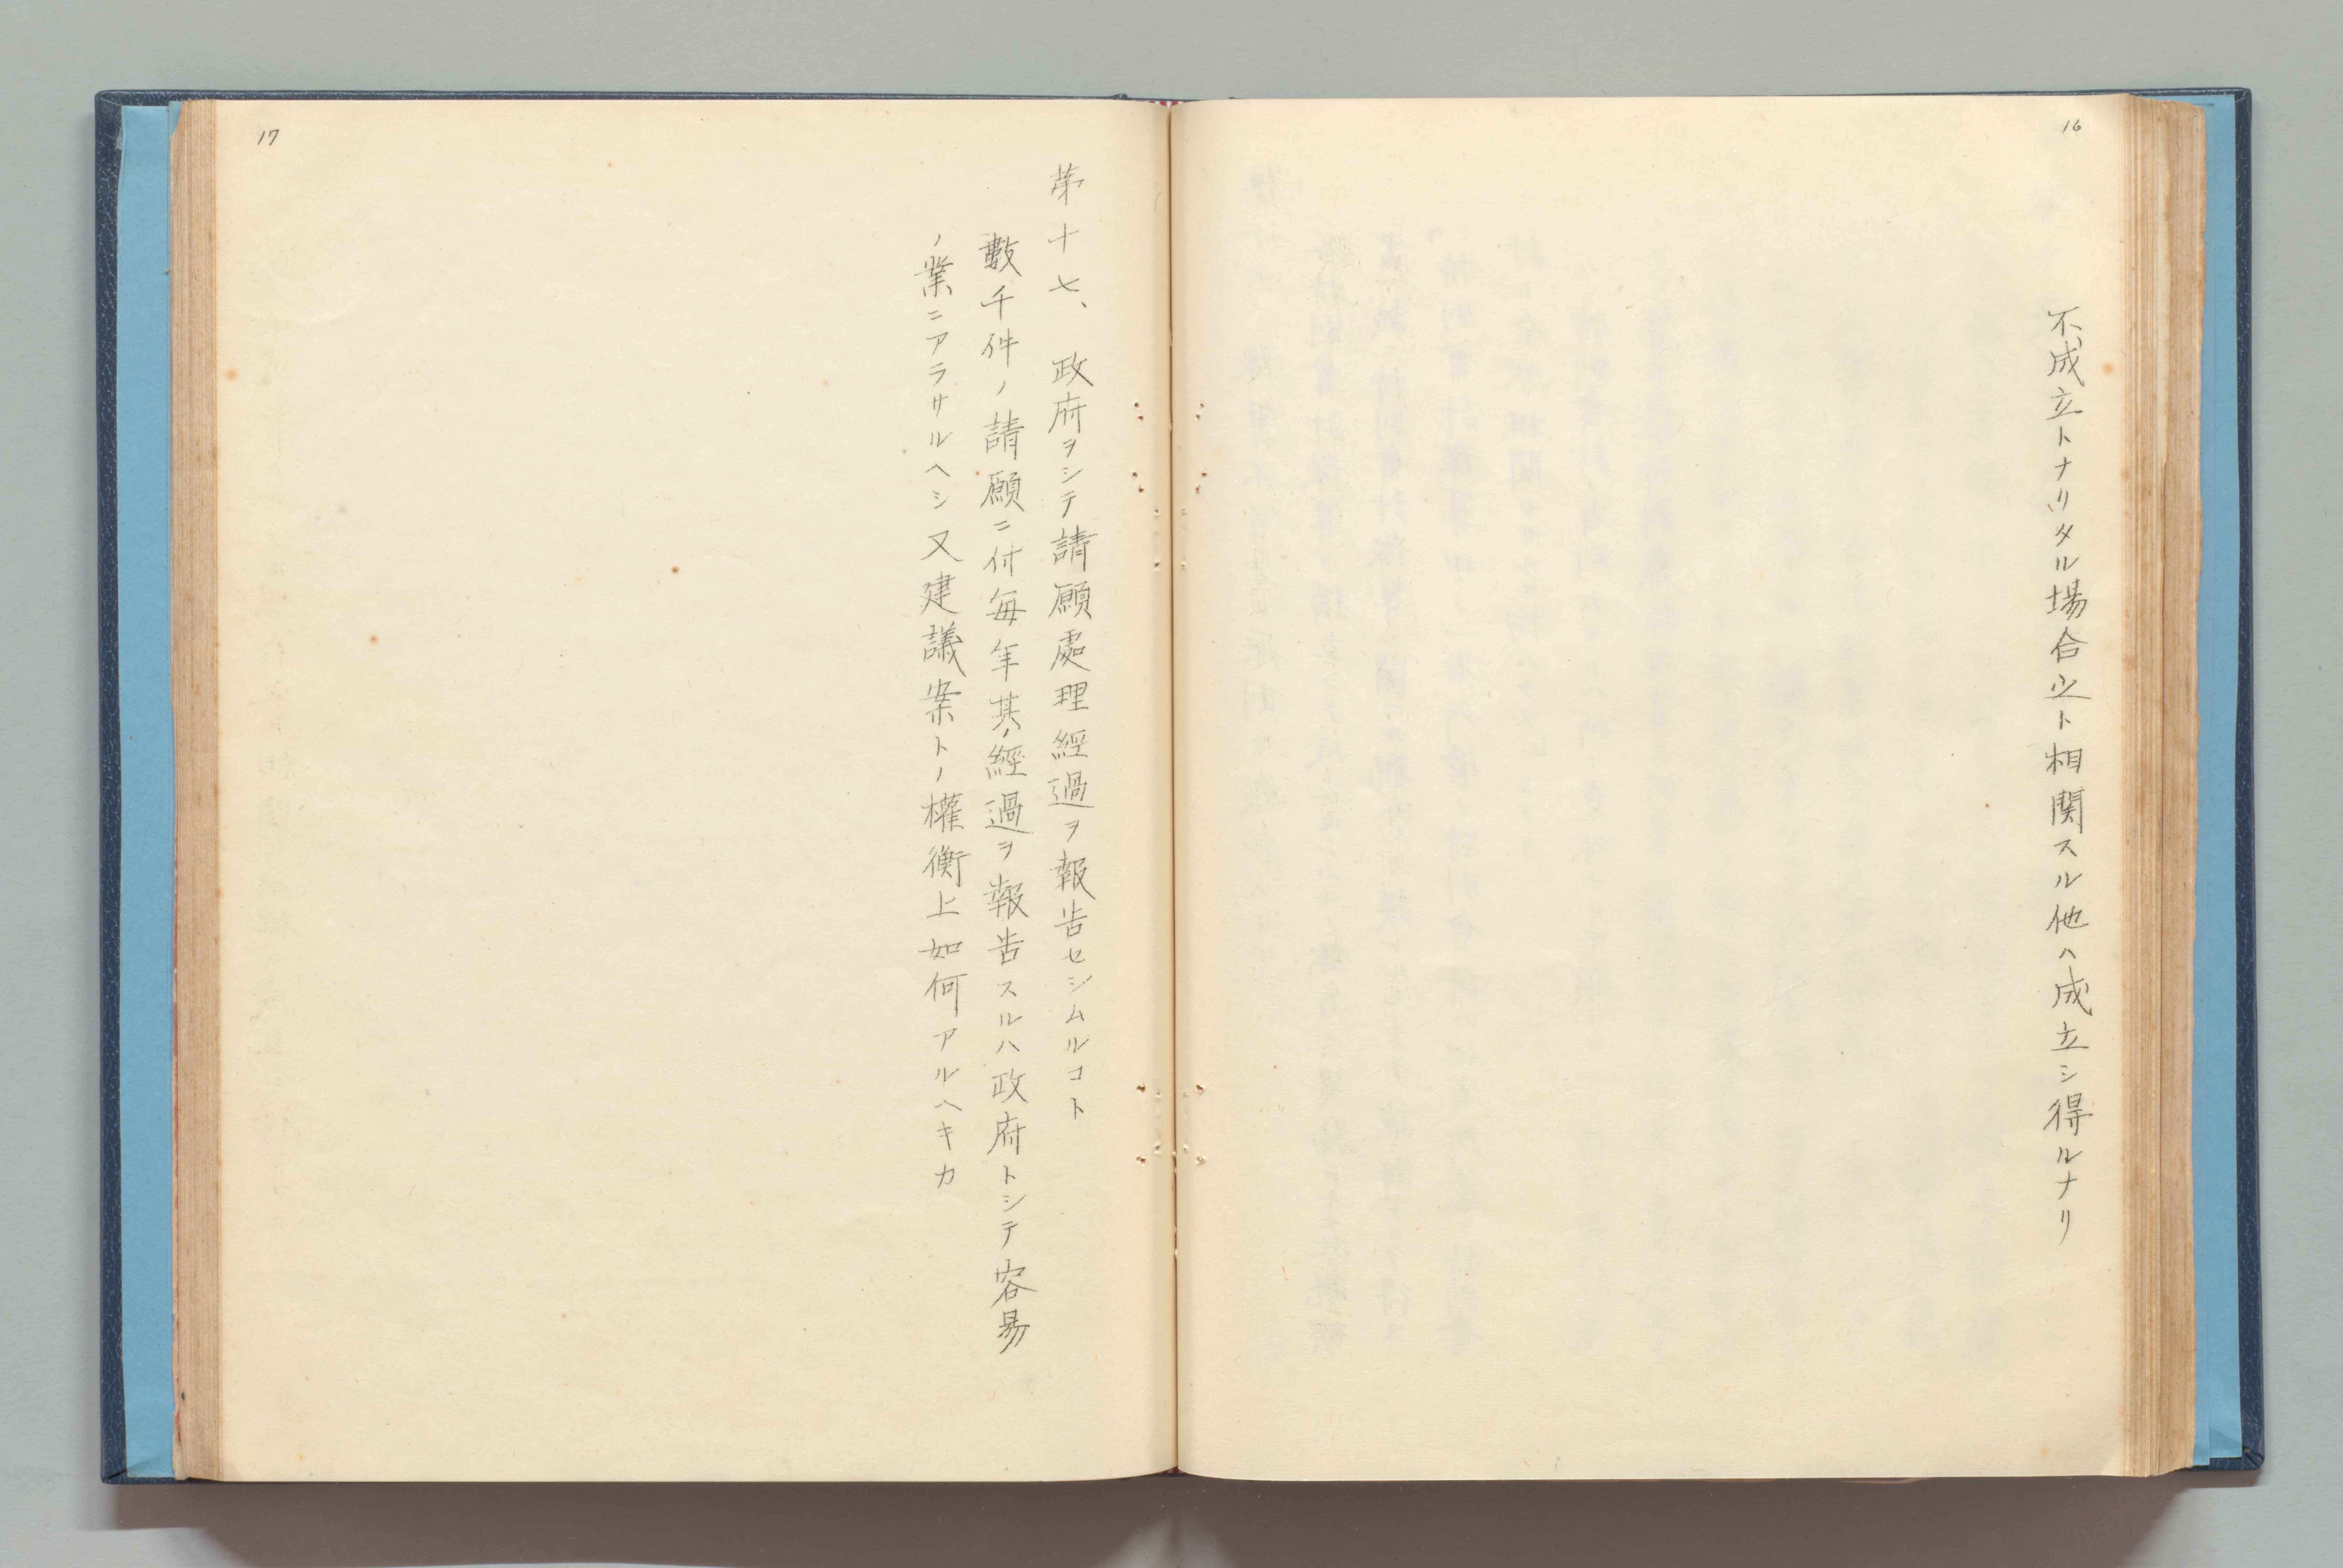 16
不成立トナリタル場合之ト相関スル他ハ成立シ得ルナリ
17
第十七、政府ヲシテ請願處理經過ヲ報告セシムルコト
數千件ノ請願ニ付毎年其ノ經過ヲ報告スルハ政府トシテ容易
ノ業ニアラサルヘシ又建議案トノ權衡上如何アルヘキカ